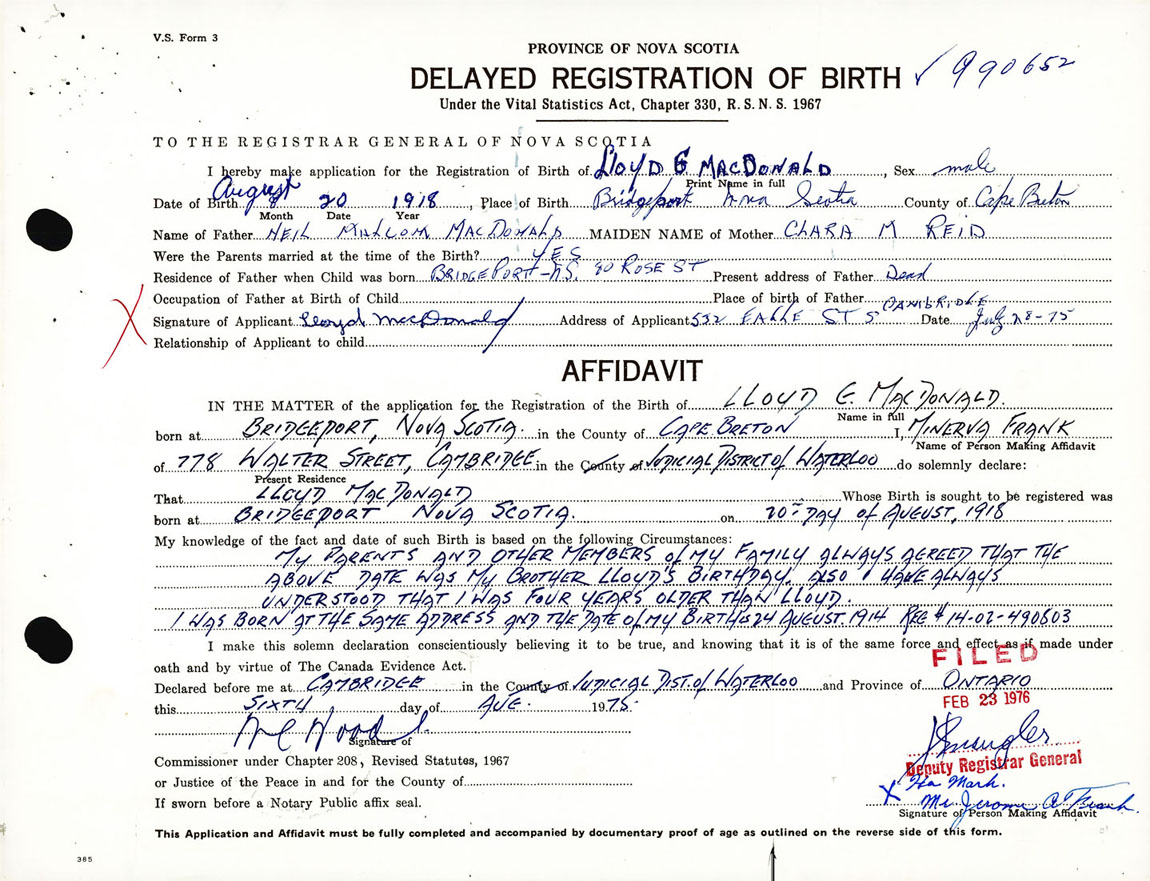 V.S. Form 3
PROVINCE OF NOVA SCOTIA
DELAYED REGISTRATION OF BIRTH ✓ 990652
Under the Vital Statistics Act, Chapter 330, R.S.N.S. 1967
TO THE REGISTRAR GENERAL OF NOVA SCOTIA
I hereby make application for the Registration of Birth of LLOYD G MACDONALD, Sex male
Print Name in full
Date of Birth August 20 1918, Place of Birth Bridgeport Nova Scotia County of Cape Breton
Month Date Year
Name of Father NEIL MALCOM MACDONALD MAIDEN NAME of Mother CLARA M REID
Were the Parents married at the time of the Birth? YES
Residence of Father when Child was born BRIDGEPORT-N.S. 80 ROSE ST Present address of Father Dead
Occupation of Father at Birth of Child Place of birth of Father
Signature of Applicant Lloyd MacDonald Address of Applicant 532 EAGLE ST S CAMBRIDGE Date July 28-75
Relationship of Applicant to child
AFFIDAVIT
IN THE MATTER of the application for the Registration of the Birth of LLOYD G. MACDONALD.
Name in full
born at BRIDGEPORT, NOVA SCOTIA. in the County of CAPE BRETON I, MINERVA FRANK
Name of Person Making Affidavit
of 778 WALTER STREET, CAMBRIDGE in the County of JUDICIAL DISTRICT of WATERLOO do solemnly declare:
Present Residence
That LLOYD MACDONALD Whose Birth is sought to be registered was
born at BRIDGEPORT NOVA SCOTIA. on 20TH DAY of AUGUST, 1918
My knowledge of the fact and date of such Birth is based on the following Circumstances:
MY PARENTS AND OTHER MEMBERS of MY FAMILY ALWAYS AGREED THAT THE
ABOVE DATE WAS MY BROTHER LLOYD'S BIRTHDAY. ALSO I HAVE ALWAYS
UNDERSTOOD THAT I WAS FOUR YEARS OLDER THAN LLOYD.
I WAS BORN AT THE SAME ADDRESS AND THE DATE of MY BIRTH IS 24 AUGUST 1914 REG # 14-02-490803
I make this solemn declaration conscientiously believing it to be true, and knowing that it is of the same force and effect as if made under
oath and by virtue of The Canada Evidence Act.
FILED
Declared before me at CAMBRIDGE in the County of JUDICIAL DIST. of WATERLOO and Province of ONTARIO
this SIXTH day of AUG. 1975.
FEB 23 1976
Signature of
Deputy Registrar General
Commissioner under Chapter 208, Revised Statutes, 1967
or Justice of the Peace in and for the County of
Her Mark.
X Mr Jerome A Frank.
If sworn before a Notary Public affix seal.
Signature of Person Making Affidavit
This Application and Affidavit must be fully completed and accompanied by documentary proof of age as outlined on the reverse side of this form.
385